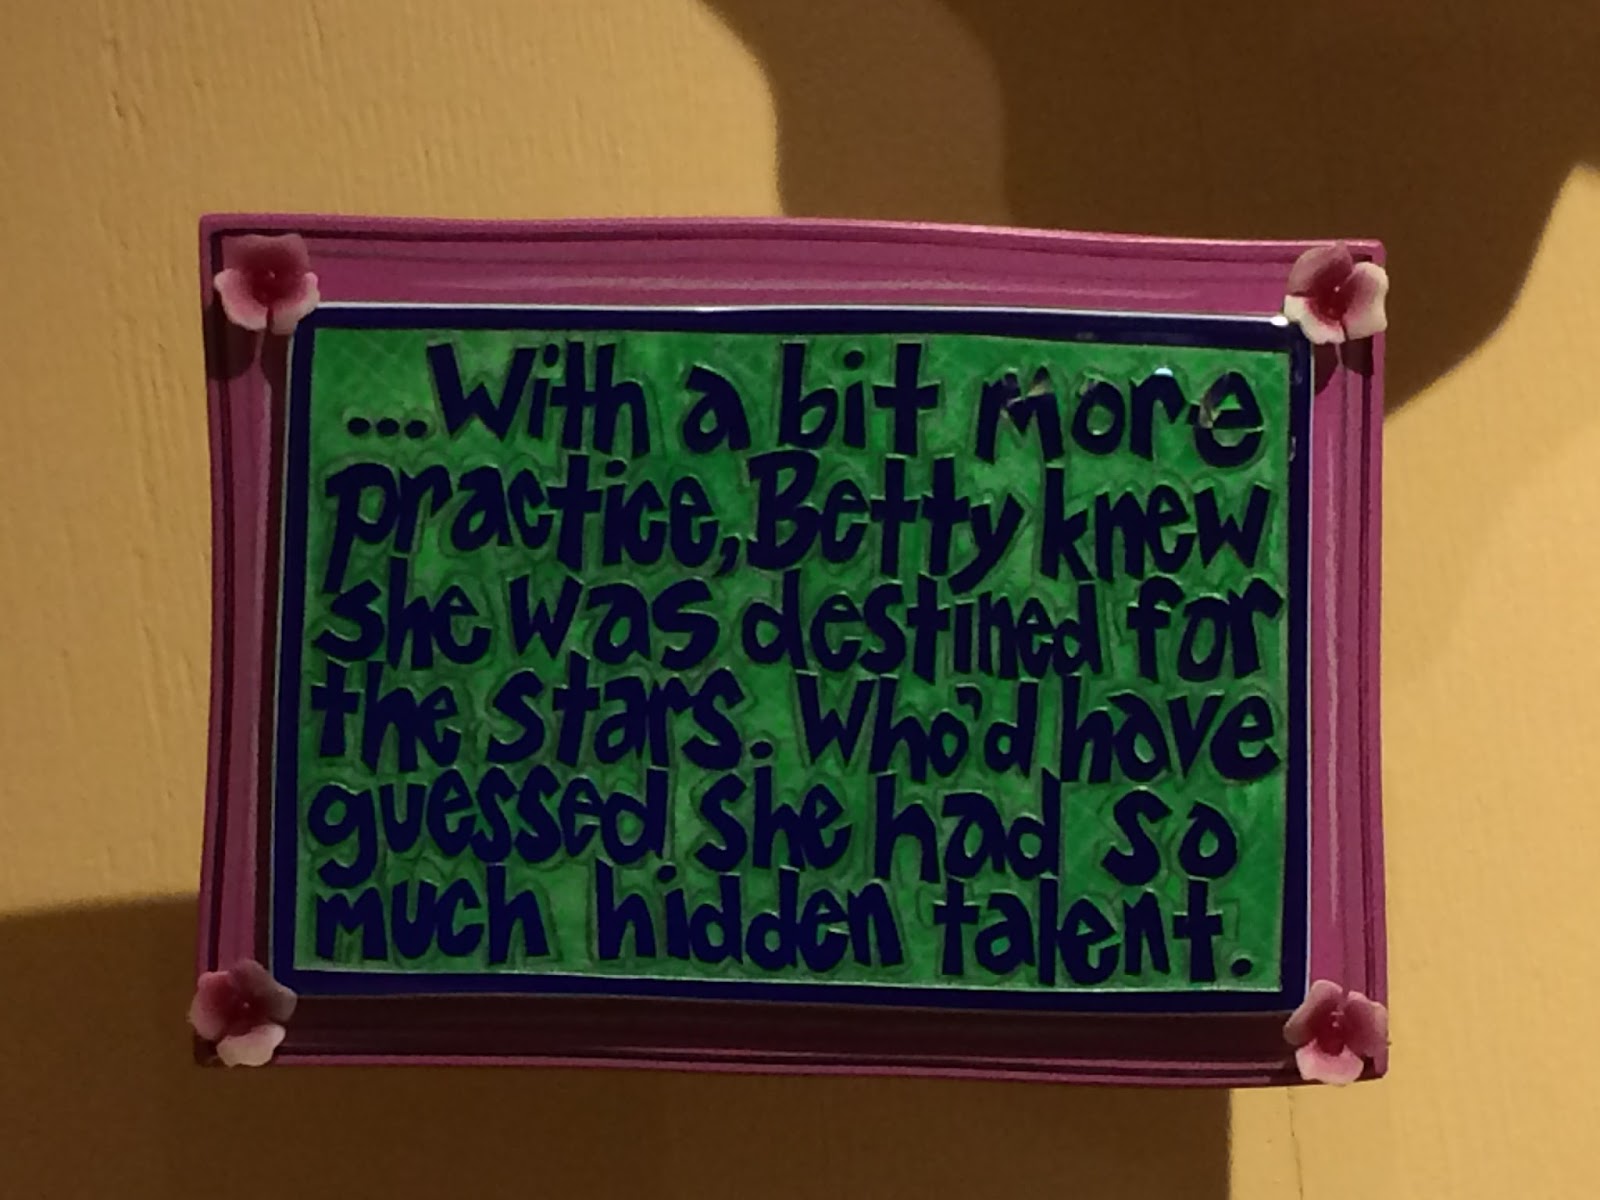 ...With a bit more
practice, Betty knew
she was destined for
the stars. Who'd have
guessed she had so
much hidden talent.